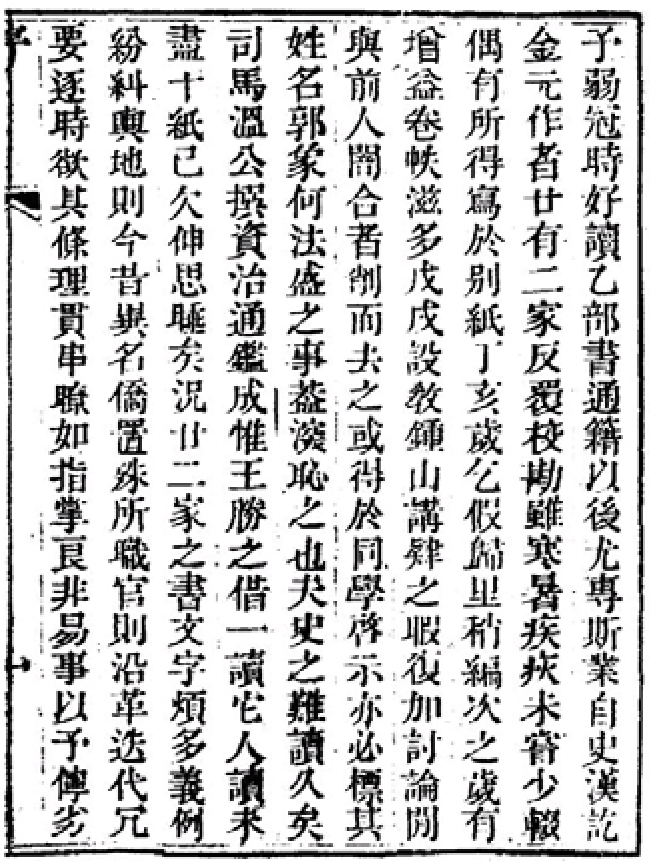 予弱冠時好讀乙部書通籍以後尤專斯業自史漢訖
金元作者廿有二家反覆校勘雖寒暑疾疢未嘗少輟
偶有所得寫於别紙丁亥歲乞假歸里稍編次之歲有
增益卷帙滋多戊戌設教鍾山講肄之暇復加討論間
與前人闇合者削而去之或得於同學啓示亦必標其
姓名郭象何法盛之事葢深恥之也夫史之難讀久矣
司馬溫公撰資治通鑑成惟王勝之借一讀它人讀未
盡十紙已欠伸思睡矣況廿二家之書文字煩多義例
紛糾輿地則今昔異名僑置殊所職官則沿革迭代冗
要逐時欲其條理貫串瞭如指掌良非易事以予儜劣